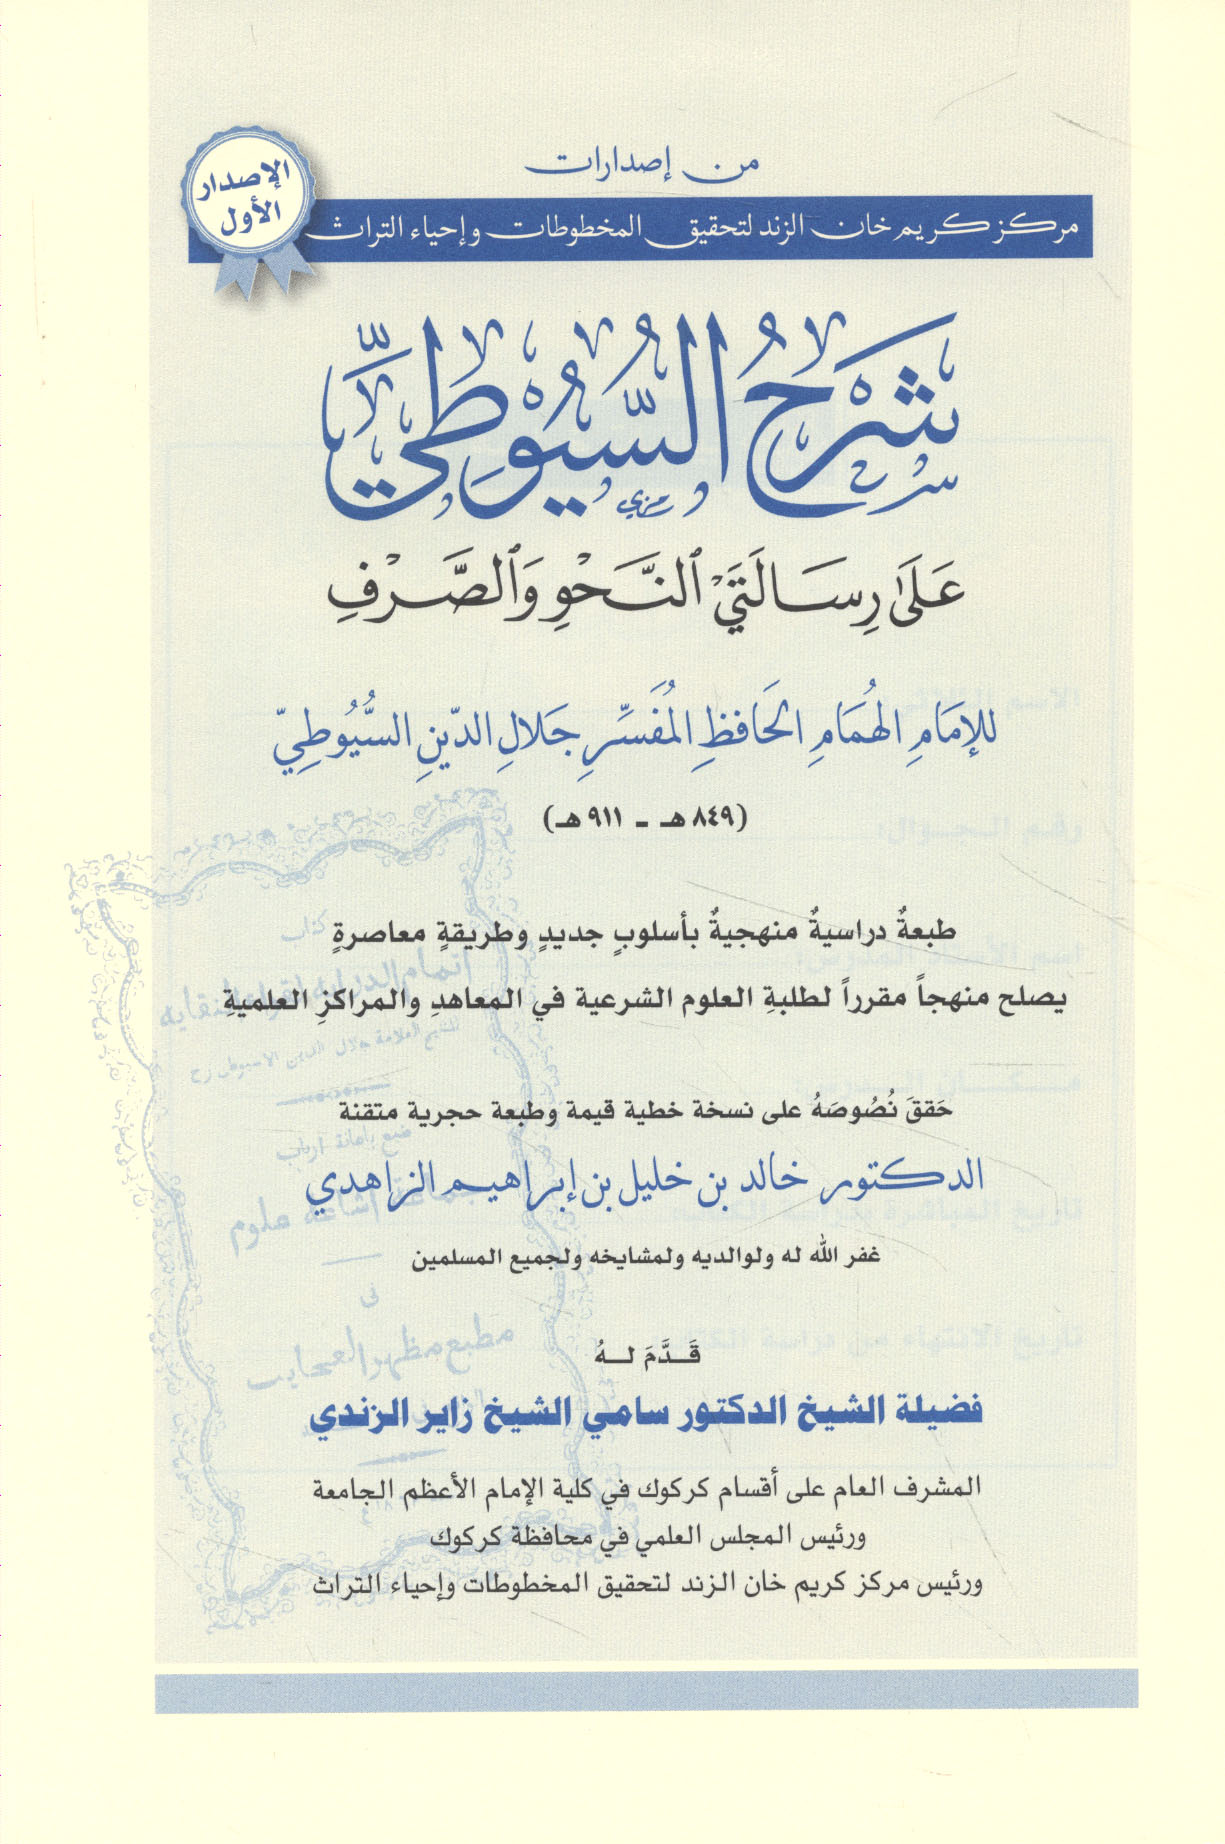 من إصدارات
مركز كريم خان الزند لتحقيق المخطوطات وإحياء التراث
الإصدار
الأول
شَرْحُ السُّيُوطِيِّ
عَلَى رِسَالَتَيْ ٱلنَّحْوِ وَٱلصَّرْفِ
للإمَامِ الهُمَامِ الحَافظِ المُفَسِّرِ جَلالِ الدّينِ السُّيُوطِيّ
(٨٤٩هـ - ٩١١هـ)
طبعةٌ دراسيةٌ منهجيةٌ بأسلوبٍ جديدٍ وطريقةٍ معاصرةٍ
يصلح منهجاً مقرراً لطلبةِ العلوم الشرعية في المعاهدِ والمراكزِ العلميةِ
حَققَ نُصُوصَهُ على نسخة خطية قيمة وطبعة حجرية متقنة
الدكتور خالد بن خليل بن إبراهيم الزاهدي
غفر الله له ولوالديه ولمشايخه ولجميع المسلمين
قَدَّمَ لهُ
فضيلة الشيخ الدكتور سامي الشيخ زاير الزندي
المشرف العام على أقسام كركوك في كلية الإمام الأعظم الجامعة
ورئيس المجلس العلمي في محافظة كركوك
ورئيس مركز كريم خان الزند لتحقيق المخطوطات وإحياء التراث
كتاب
اتمام الدرايه لقراء النقايه
للشيخ العلامة جلال الدين الاسيوطى رح
جماعة اشاعة علوم
فى
مطبع مظهر العجايب